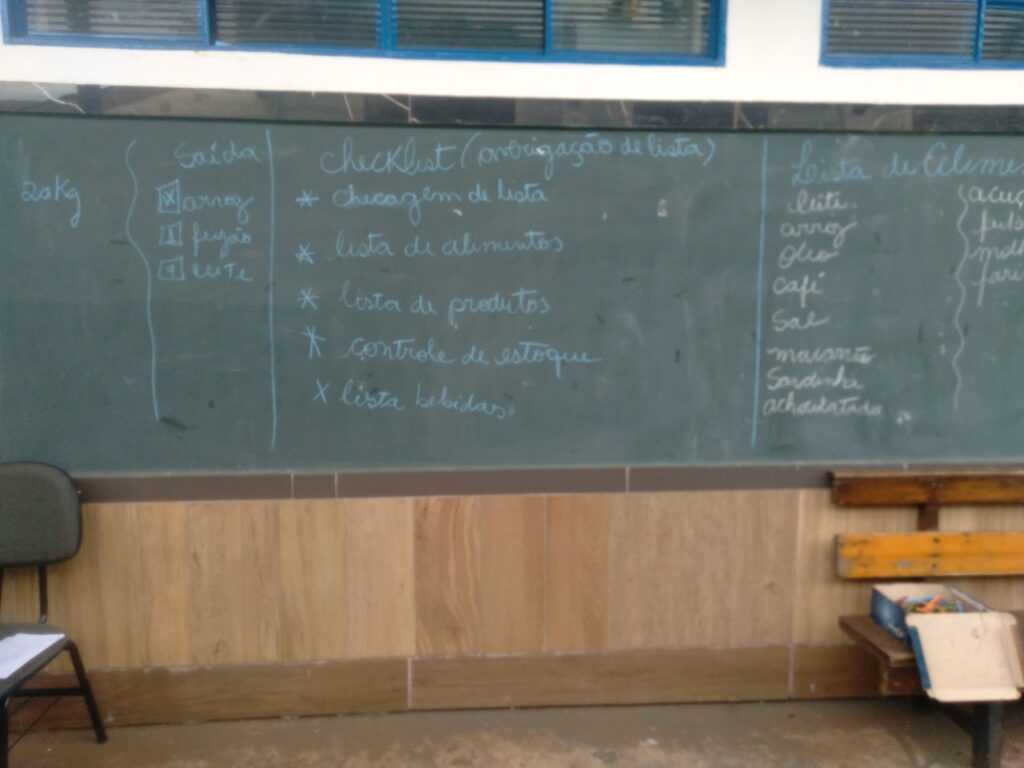 20Kg
Saída
x arroz
1 feijão
1 leite
checklist ( de lista)
* checagem de lista
* lista de alimentos
* lista de produtos
* controle de estoque
x lista bebidas.
Lista de Alime
leite.
arroz
óleo
café
Sal
macarrão
Sardinha
achocolatado